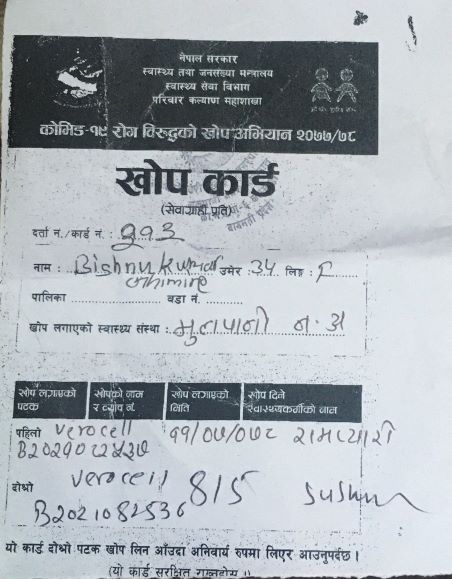 नेपाल सरकार
स्वास्थ्य तथा जनसंख्या मन्त्रालय
स्वास्थ्य सेवा विभाग
परिवार कल्याण महाशाखा
कोभिड-१९ रोग विरुद्धको खोप अभियान २०७७/७८
खोप कार्ड
(सेवाग्राही प्रति)
दर्ता नं./कार्ड नं. :
नाम : Bishnu Kumari उमेर : 34 लिङ्ग : F
Ghimire
पालिका वडा नं.
खोप लगाएको स्वास्थ्य संस्था : मुलपानी न. अ
खोप लगाएको पटक खोपको नाम र व्याच नं. खोप लगाएको मिति खोप दिने स्वास्थ्यकर्मीको नाम
पहिलो verocell ११/०७/०७८ रामप्यारी
दोश्रो verocell 8/5
B2021082536
यो कार्ड दोश्रो पटक खोप लिन आउँदा अनिवार्य रुपमा लिएर आउनुपर्दछ ।
(यो कार्ड सुरक्षित राख्नुहोस ।)